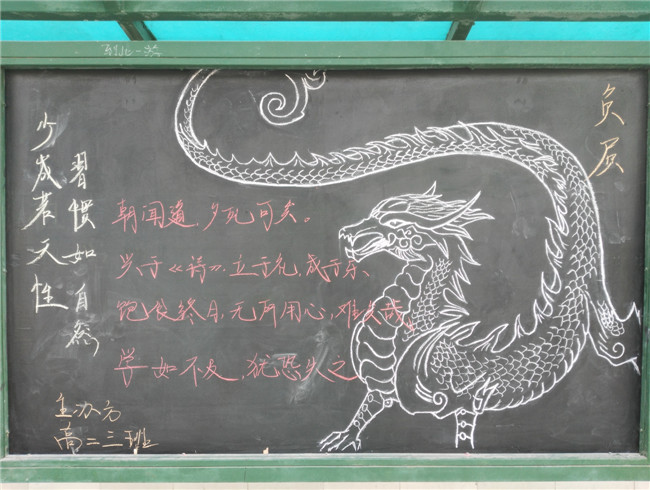 少成若天性
習慣如自然
朝闻道，夕死可矣。
兴于《诗》，立于礼，成于乐、
饱食终日，无所用心，难矣哉。
学如不及，犹恐失之
负屃
主办方
高二三班